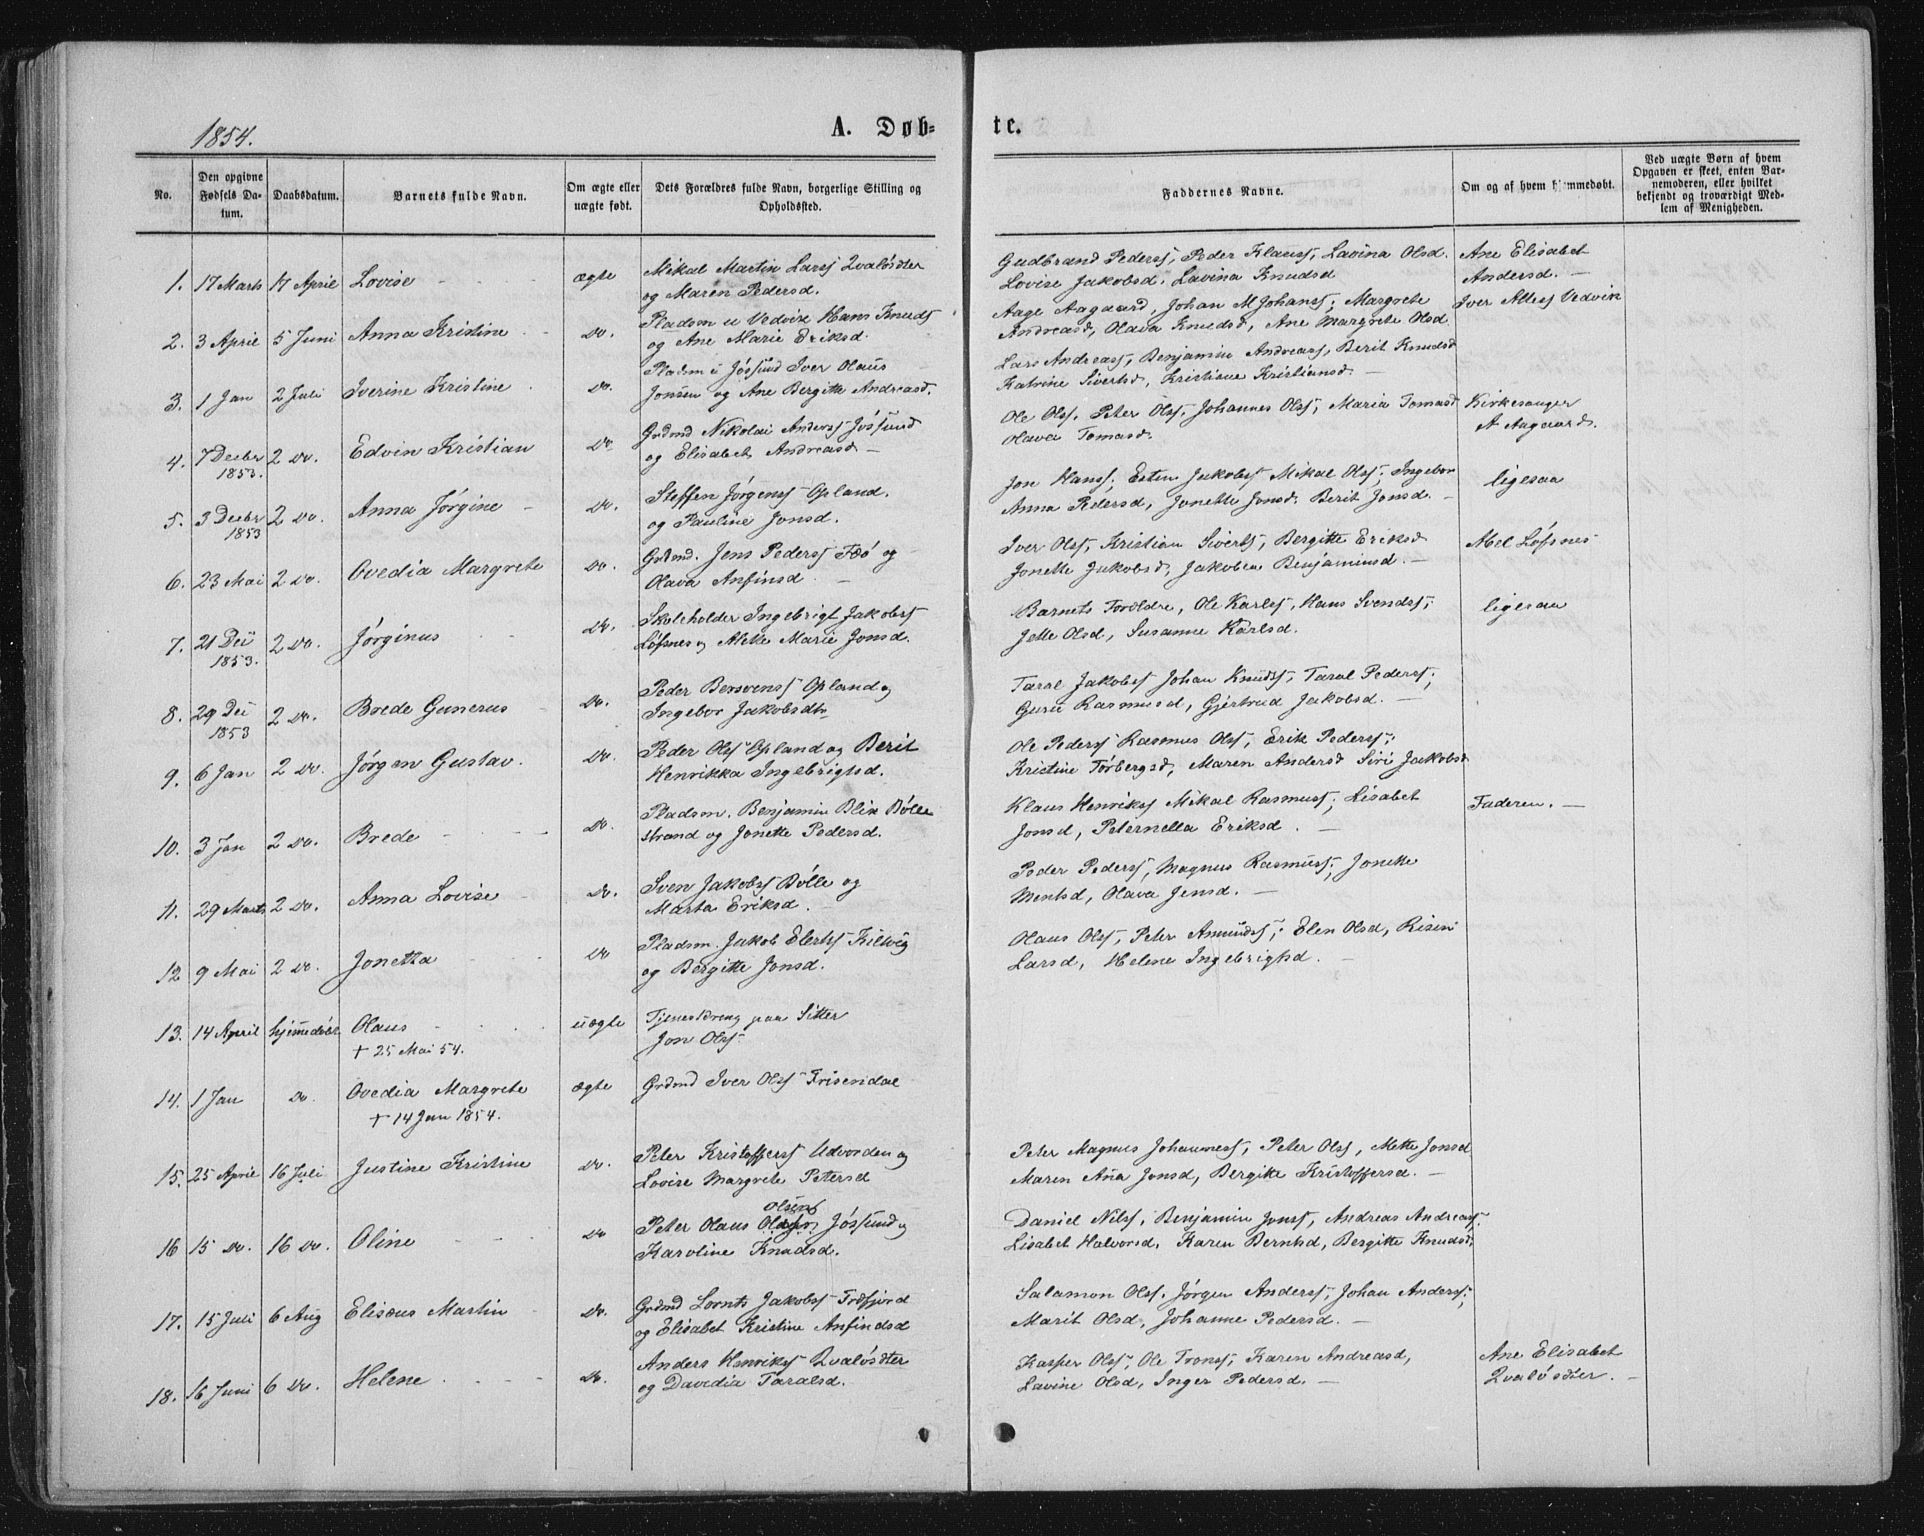 1854.
A. Døb-
te.
No.
Den opgivne Fødsels Da-tum.
Daabsdatum.
Barnets fulde Navn.
Om ægte eller uægte født.
Dets Forældres fulde Navn, borgerlige Stilling og Opholdssted.
Faddernes Navne.
Om og af hvem hjemmedøbt.
Ved uægte Børn af hvem Opgaven er skeet, enten Bar-nemoderen, eller hvilket bekjendt og troværdigt Med-lem af Menigheden.
1. 17 Marts 17 April Lovise ægte Mikal Martin Larss Qvaløsæter
og Maren Pedersd.
Gudbrand Pederss, Peder Klauss, Lavina Olsd.
Lovise Jakobsd, Lavina Knudsd
Ane Elisabet
Andersd.
2. 3 April 5 Juni Anna Kristine do. Pladsm u Vedvik Hans Knuds
og Ane Marie Eriksd.
Aage Aagaard, Johan M Johanss, Margrete
Andreasd, Olava Knudsd, Ane Margrete Olsd
Iver Vedvik
3. 1 Jan 2 Juli Iverine Kristine do Pladsm i Jøssund Iver Olaus
Jonsen og Ane Bergitte Andreasd.
Lars Andreass, Benjamin Andreass, Berit Knudsd
Katrine Sivertsd, Kristiane Kristiansd.
4. 7 Decbr 1853. 2 do. Edvin Kristian do. Grdmd Nikolai Anderss Jøssund
og Elisabet Andreasd
Ole Olss, Peter Olss, Johannes Olss, Maria Tomasd
Olava Tomasd.
Kirkesanger
A Aagaard.
5. 3 Decbr 1853 2 do. Anna Jørgine do. Steffen Jørgenss Opland.
og Pauline Jonsd.
Jon Hanss, Esten Jakobss Mikal Olss, Ingebor
Anna Pedersd, Jonette Jonsd. Berit Jonsd.
ligesaa
6. 23 Mai 2 do. Ovedia Margrete do. Grdmd. Jens Pederss Fæø og
Olava Anfinsd.
Iver Olss, Kristian Siverts, Bergitte Eriksd
Jonette Jakobsd, Jakobea Benjaminsd.
Mel Løfsnes
7. 21 De 1853. 2 do. Jørginus do. Skoleholder Ingebrigt Jakobss
Løfsnes og Mette Marie Jonsd.
Barnets Forældre, Ole Karlss, Hans Svendss,
Jette Olsd, Susanne Karlsd.
ligesaa
8. 29 De 1853 2 do. Brede Gunerus do. Peder Bersvenss Opland og
Ingebor Jakobsdtr
Taral Jakobss Johan Knuds, Taral Pederss,
Guru Rasmusd, Gjertrud Jakobsd.
9. 6 Jan 2 do. Jørgen Gustav. do. Peder Olss Opland og Berit
Henrikka Ingebrigtsd.
Ole Pederss Rasmus Olss, Erik Pederss,
Kristine Torbergsd, Maren Andersd Siri Jakobsd
10. 3 Jan 2 do. Brede do. Pladsm. Benjamin Blix Bølle
strand og Jonette Pedersd.
Klaus Henrikss Mikal Rasmuss, Lisabet
Jonsd, Peternella Eriksd.
Faderen.
11. 29 Marts 2 do. Anna Lovise do. Sven Jakobss Bølle og
Marta Eriksd.
Peder Pederss, Magnus Rasmuss, Jonette
Mentsd, Olava Jensd.
12 9 Mai 2 do. Jonetta do Pladsm. Jakob Elertss Kilvig
og Bergitte Jonsd.
Olaus Olss, Peter Amundss, Elen Olsd, Risin
Larsd, Helene Ingebrigtsd.
13. 14 April hjemmedøbt Olaus uægte Tjenestdreng paa Sitter
+ 25 Mai 54. Jon Olss
14. 1 Jan do. Ovedia Margrete ægte Grdmd Iver Olss Frisendal
+ 14 Jan 1854.
15. 25 April 16 Juli Justine Kristine do. Peter Kristofferss Udvorden og
Lovise Margrete Petersd
Peter Magnus Johanness, Peter Olss, Mette Jonsd
Maren Aña Jonsd, Bergitte Kristoffersd.
16 15 do. 16 do. Oline do Peter Olaus Olsens Jøssund og
Karoline Knudsd.
Daniel Nilss, Benjamin Jonss, Andreas Andreass.
Lisabet Halvorsd, Karen Berntsd, Bergitte Knudsd,
17. 15 Juli 6 Aug Elisæus Martin do. Grdmd Lornts Jakobss Træfjord
og Elisabet Kristine Anfindsd
Salamon Olss, Jørgen Anderss, Johan Anderss,
Marit Olsd, Johanne Pedersd.
18. 16 Juni 6 do. Helene do. Anders Henrikss Qvaløsæter
og Davedia Taralsd.
Kasper Olss, Ole Tronss, Karen Andreasd,
Lavine Olsd, Inger Pedersd.
Ane Elisabet
Qvaløsæter.